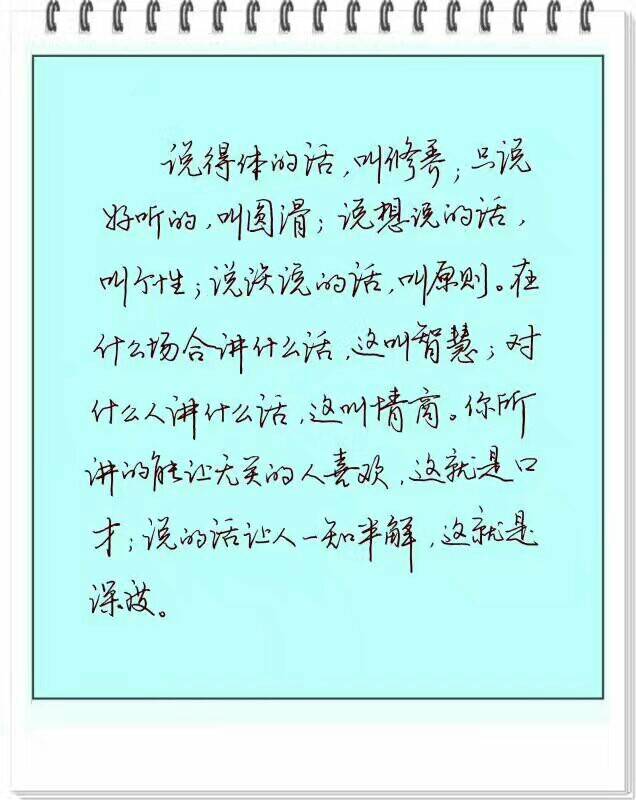 说得体的话，叫修养；只说
好听的，叫圆滑；说想说的话，
叫个性；说该说的话，叫原则。在
什么场合讲什么话，这叫智慧；对
什么人讲什么话，这叫情商。你所
讲的能让无关的人喜欢，这就是口
才；说的话让人一知半解，这就是
深度。